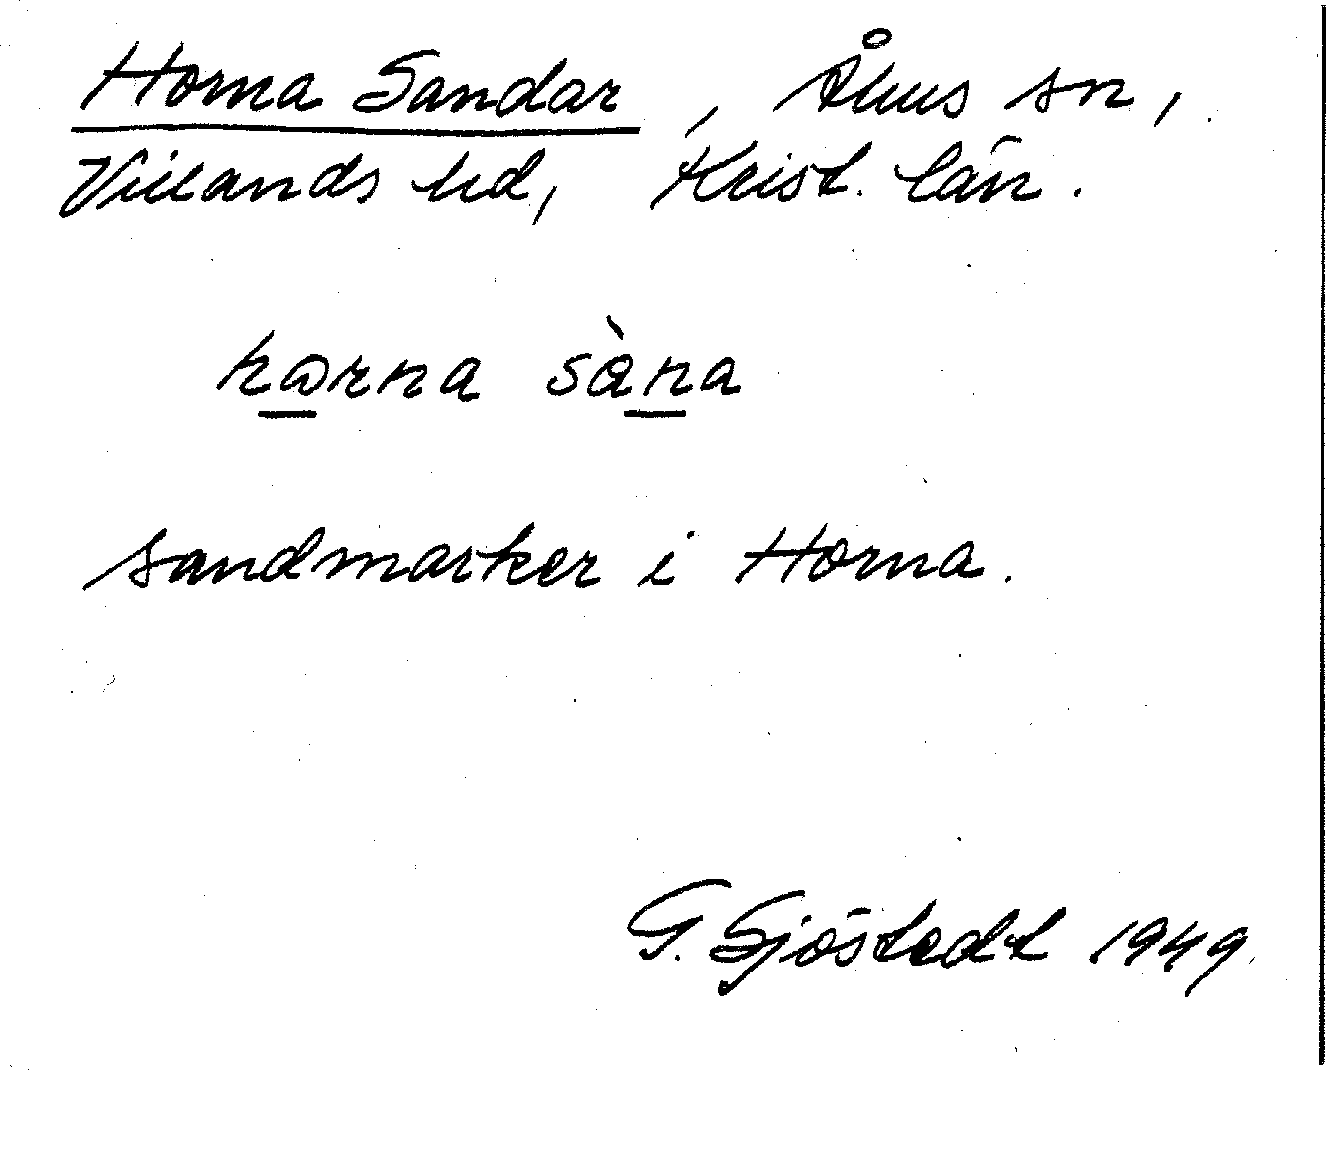 Horna Sandar, Åhus sn,
Villands hd, Krist. län.
hɷrna sàna
sandmarker i Horna.
G. Sjöstedt 1949.